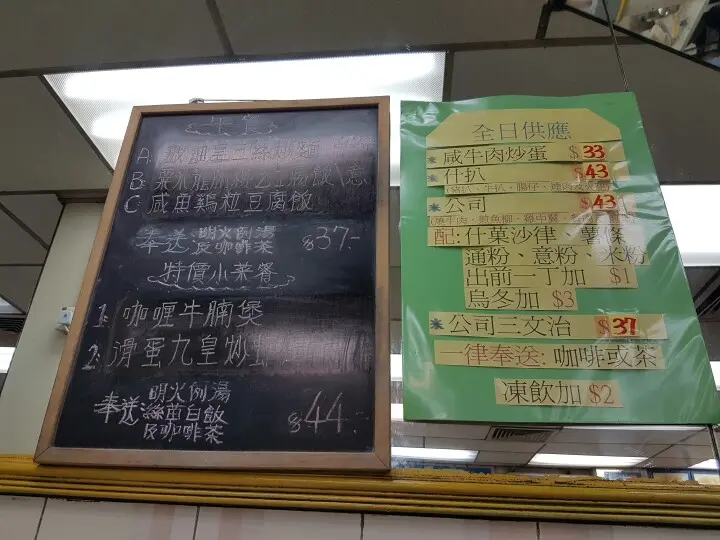 午餐
A. 豉油皇三絲炒麵
B. 粟米龍脷飯
C 咸魚鷄粒豆腐飯
奉送 明火例湯 及咖啡茶 $37.-
特價小菜餐
1. 咖喱牛腩煲
2. 滑蛋九皇炒
奉送 明火例湯 絲苗白飯 及咖啡茶 $44.-
全日供應
咸牛肉炒蛋 $33
什扒 $43
公司 $43
配:什菓沙律、薯條
通粉、意粉、米粉
出前一丁加 $1
烏冬加 $3
公司三文治 $37
一律奉送:咖啡或茶
凍飲加 $2